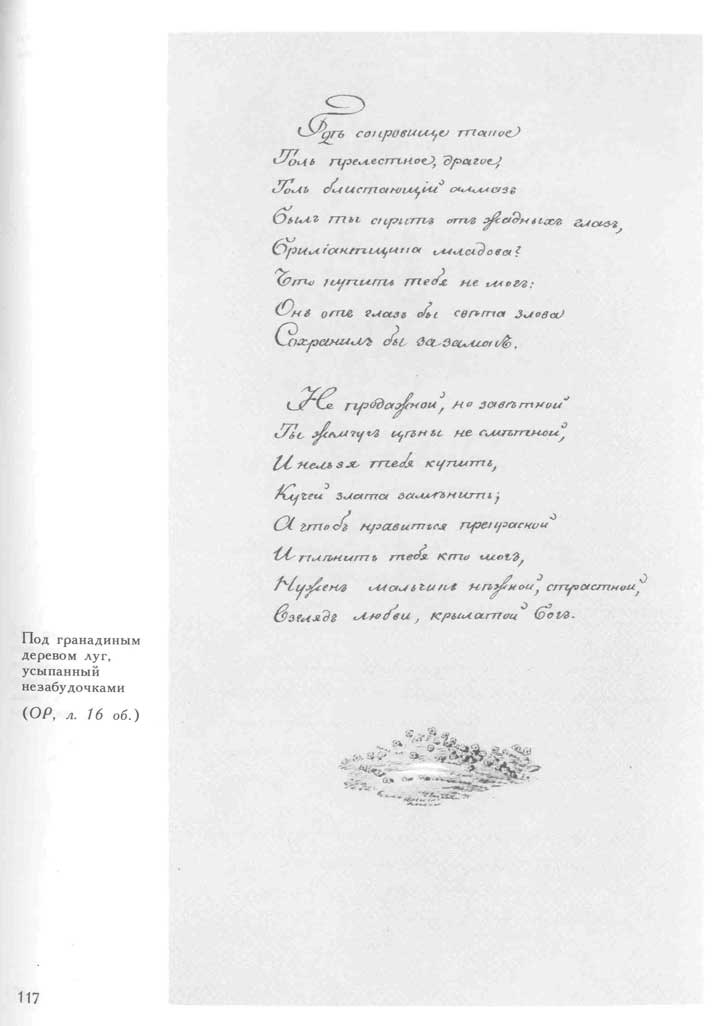 Гдѣ сокровище такое
Толь прелестное, драгое,
Толь блистающій алмазъ
Былъ ты скрытъ отъ жадныхъ глазъ,
Бриліантщика младова?
Что купить тебя не могъ:
Онъ отъ глазъ бы свѣта злова
Сохранилъ бы за замокъ.
Не продажной, но завѣтной
Ты жемчугъ цѣны не смѣтной,
И нельзя тебя купить,
Кучей злата замѣнить;
А чтобъ нравиться прекрасной
И плѣнить тебя кто могъ,
Нуженъ мальчикъ нѣжной, страстной,
Взглядъ любви, крылатой Богъ.
Под гранадиным
деревом луг,
усыпанный
незабудочками
(ОР, л. 16 об.)
117